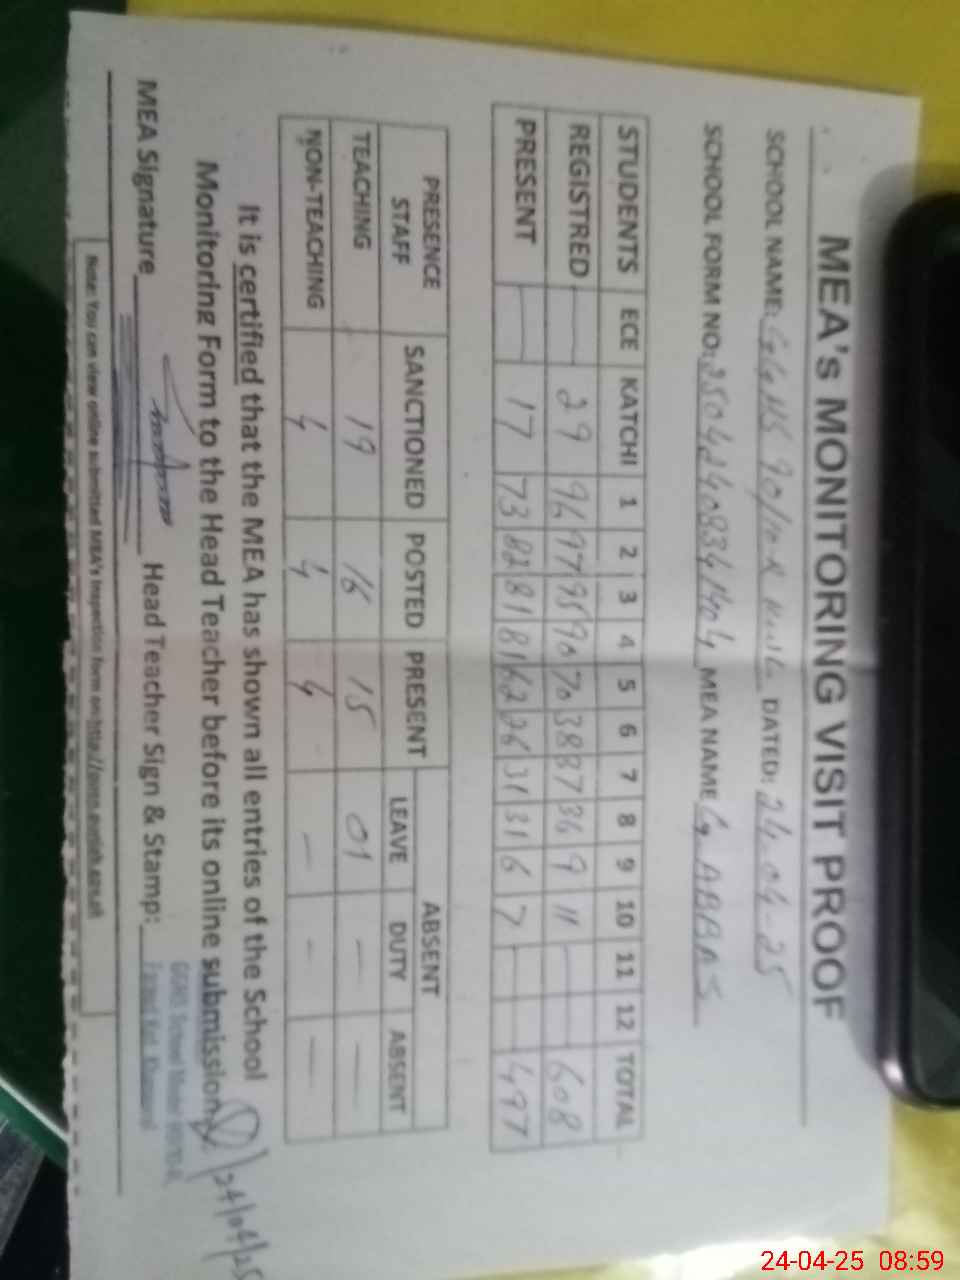 MEA's MONITORING VISIT PROOF
SCHOOL NAME: GGHS 90/10-R DATED: 24-04-25
SCHOOL FORM NO: MEA NAME G. ABBAS
STUDENTS ECE KATCHI 1 2 3 4 5 6 7 8 9 10 11 12 TOTAL
REGISTRED — 29 96 97 95 90 70 38 87 36 9 11 608
PRESENT — 17 73 82 81 81 62 26 31 31 6 7 497
PRESENCE STAFF SANCTIONED POSTED PRESENT ABSENT
LEAVE DUTY ABSENT
TEACHING 19 16 15 01 — —
NON-TEACHING 4 4 4 — — —
It is certified that the MEA has shown all entries of the School
Monitoring Form to the Head Teacher before its online submission.
24/04/25
MEA Signature Head Teacher Sign & Stamp:
Note: You can view online submitted MEA's Inspection form on
24-04-25 08:59